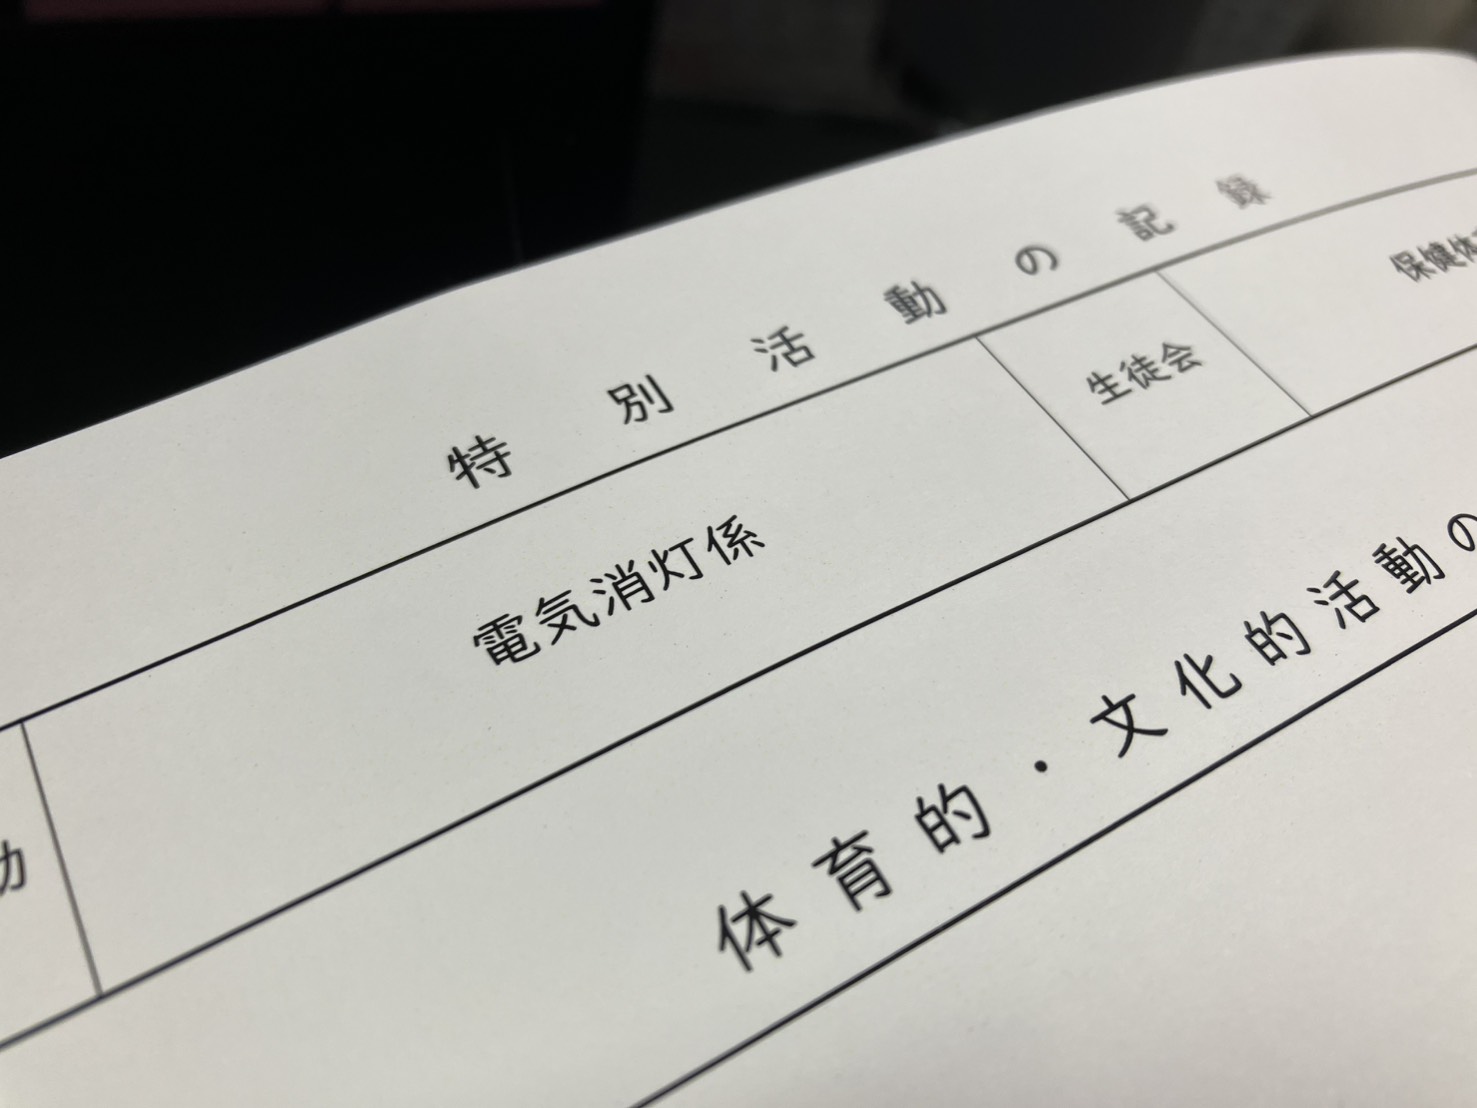 特別活動の記録
電気消灯係 生徒会 保健体
体育的・文化的活動の